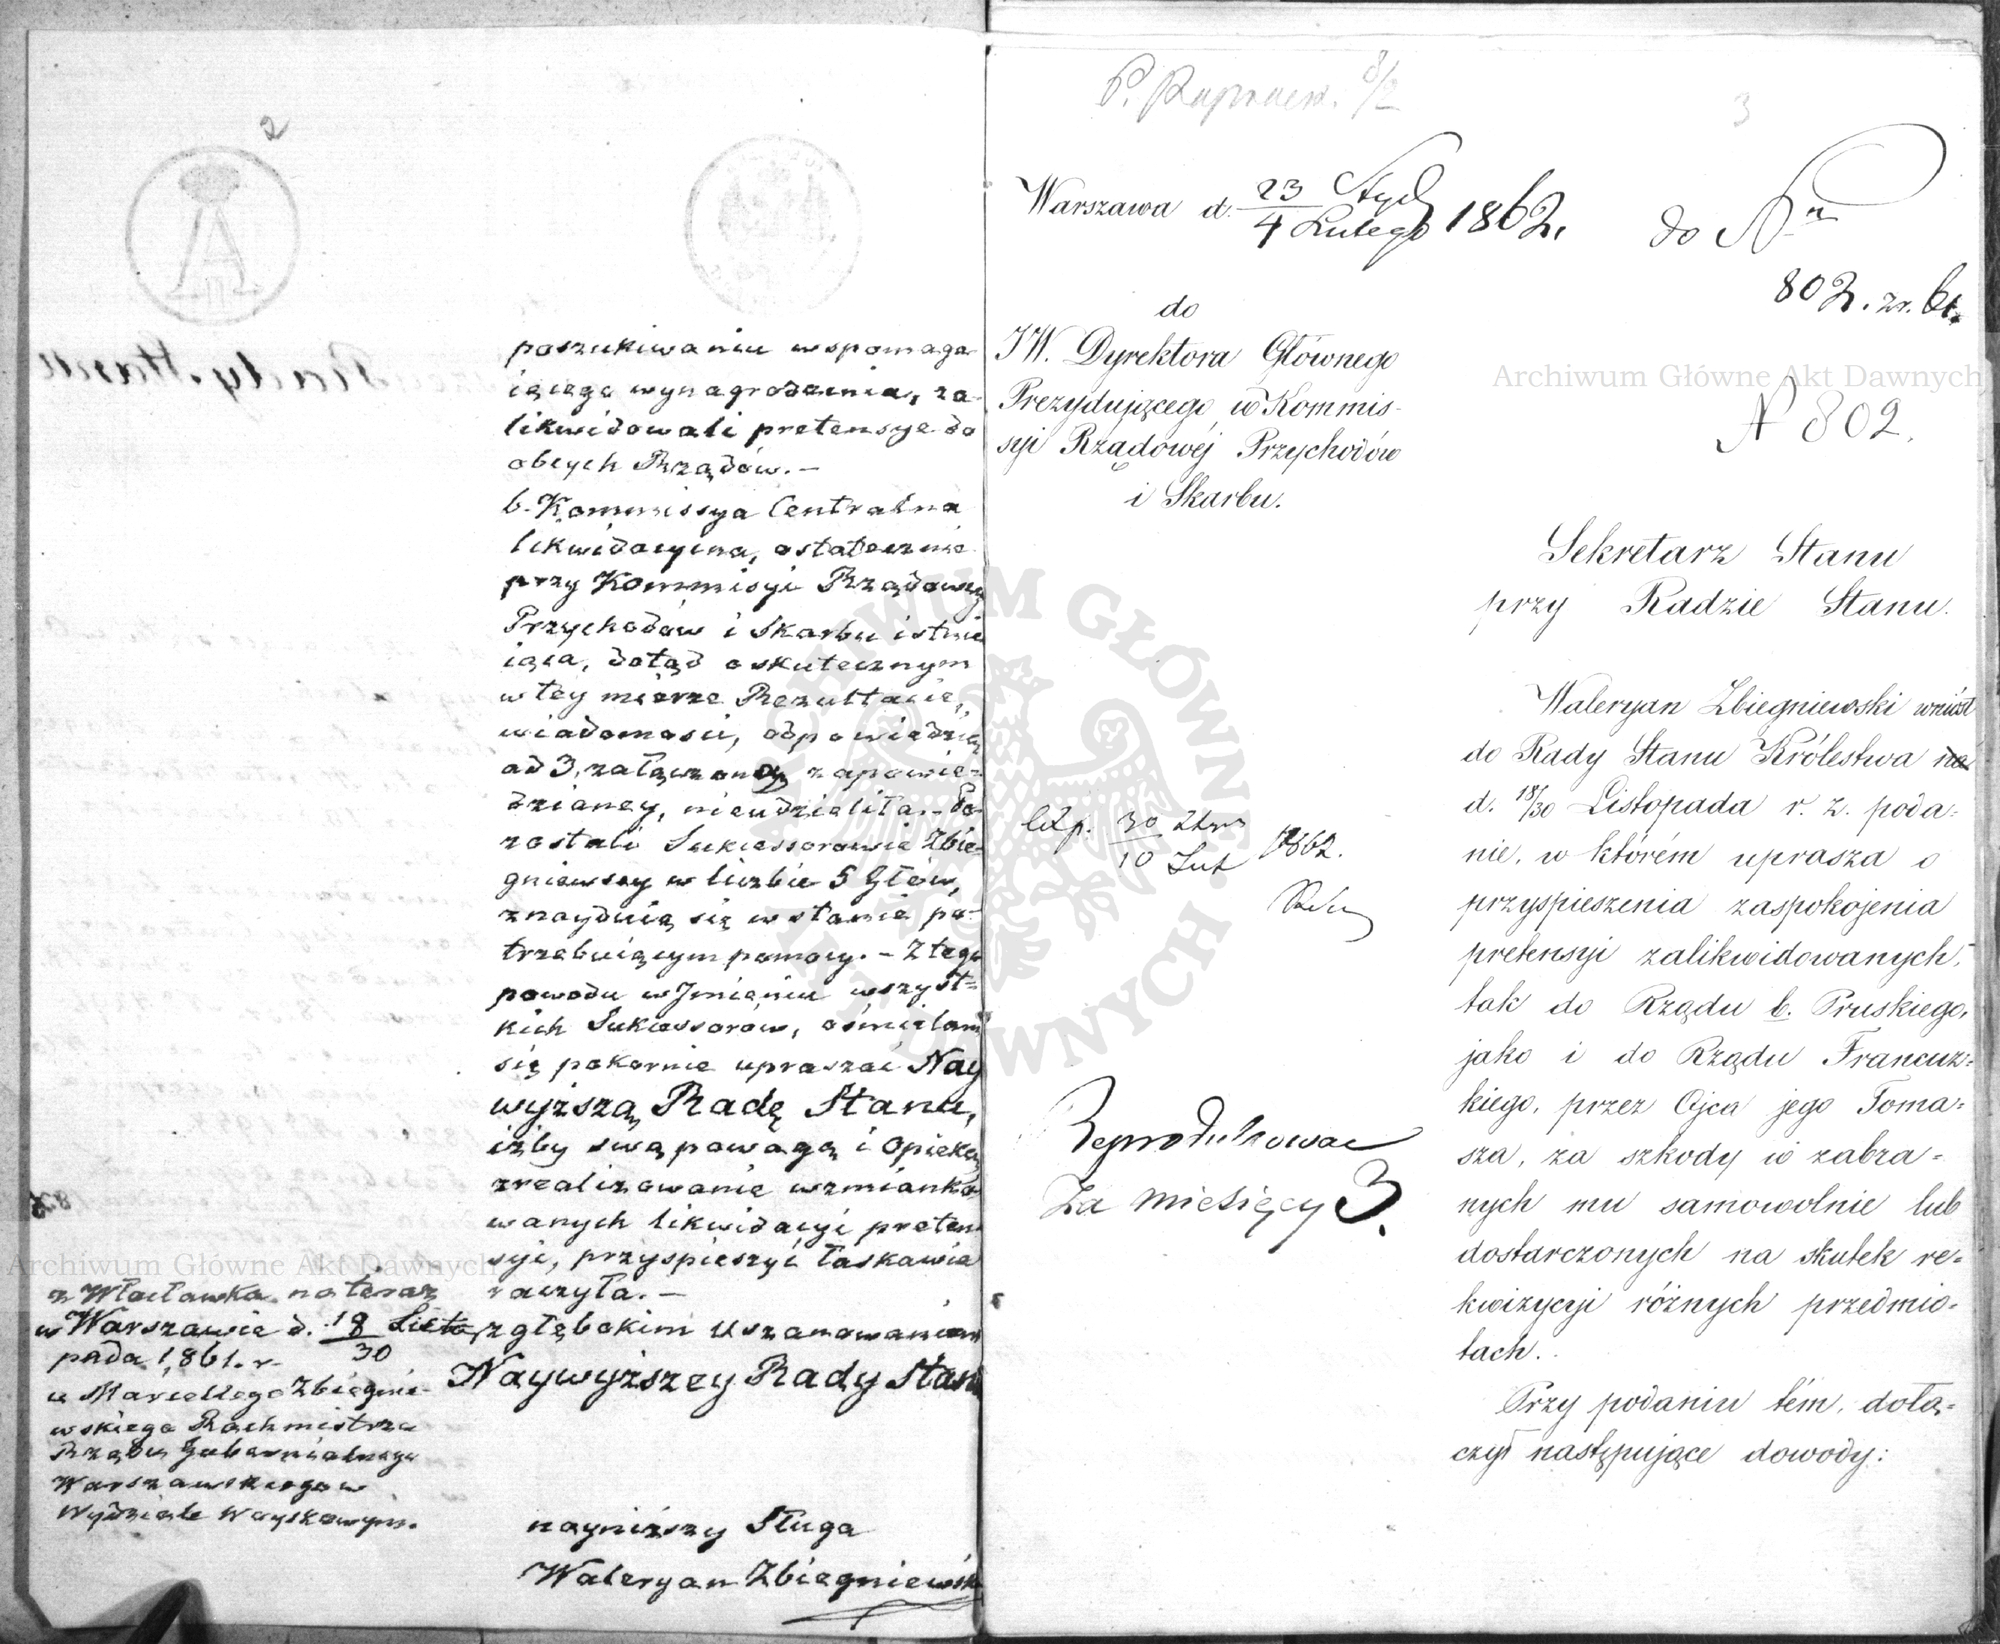 2
poszukiwaniu wspomaga
iącego wynagrodzenia, za-
likwidowali pretensye do
obcych Rządów. –
b. Kommissya Centralna
likwidacyina, ostatecznie
przy Kommisyi Rządowey
Przychodów i Skarbu istnie
iąca, dotąd o skutecznym
w tey mierze Rezultacie,
wiadomości, odpowiedzią
ad 3, załączoney zapowie-
dzianey, nieudzieliła. – Po
zostali Sukcessorowie Zbie-
gniewscy w liczbie 5 Głów,
znayduią się w stanie po-
trzebuiącym pomocy. – Z tego
powodu w Jmieniu wszyst=
kich Sukcessorów, ośmielam
się pokornie upraszać Nay
wyższą Radę Stanu,
iżby swą powagą i opieką
zrealizowanie wzmianko
wanych likwidacyi preten
syi, przyspieszyć łaskawie
raczyła. –
z głębokim uszanowaniem
Naywyższey Rady Stanu
z Włocławka na teraz
w Warszawie d. 18/30 Listo
pada 1861. r.
u Marcellego Zbiegnie-
wskiego Rachmistrza
Rządu Gubernialnego
Warszawskiego w
Wydziale Woyskowym.
nayniższy Sługa
Waleryan Zbiegniewski
3
Warszawa d. 23 Stycz/4 Lutego 1862.
do Nru
802. zr. 61.
do
JW. Dyrektora Głównego
Prezydującego w Kommis-
syi Rządowéj Przychodów
i Skarbu.
N 802.
Sekretarz Stanu
przy Radzie Stanu.
Waleryan Zbiegniewski wniósł
do Rady Stanu Królestwa na
d. 18/30 Listopada r. z. poda=
nie, w którém uprasza o
przyspieszenia zaspokojenia
pretensyi zalikwidowanych,
tak do Rządu b. Pruskiego,
jako i do Rządu Francuz=
kiego, przez Ojca jego Toma=
sza, za szkody w zabra=
nych mu samowolnie lub
dostarczonych na skutek re=
kwizycyi różnych przedmio=
tach.
Przy podaniu tém, dołą=
czył następujące dowody:
30
10 Lut 1862.
Reprodukować
Za miesięcy 3.
Archiwum Główne Akt Dawnych
Archiwum Główne Akt Dawnych
ARCHIWUM GŁÓWNE AKT DAWNYCH